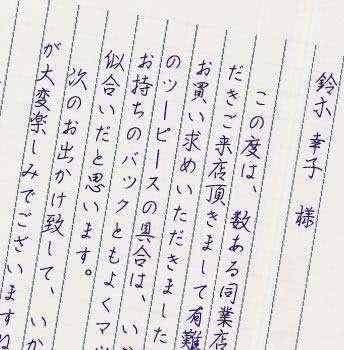 鈴木 幸子 様
この度は、数ある同業店
だきご来店頂きまして有難
お買い求めいただきました
のツーピースの具合は、い
お持ちのバックともよくマッ
似合いだと思います。
次のお出かけ致して、いか
が大変楽しみでございますね